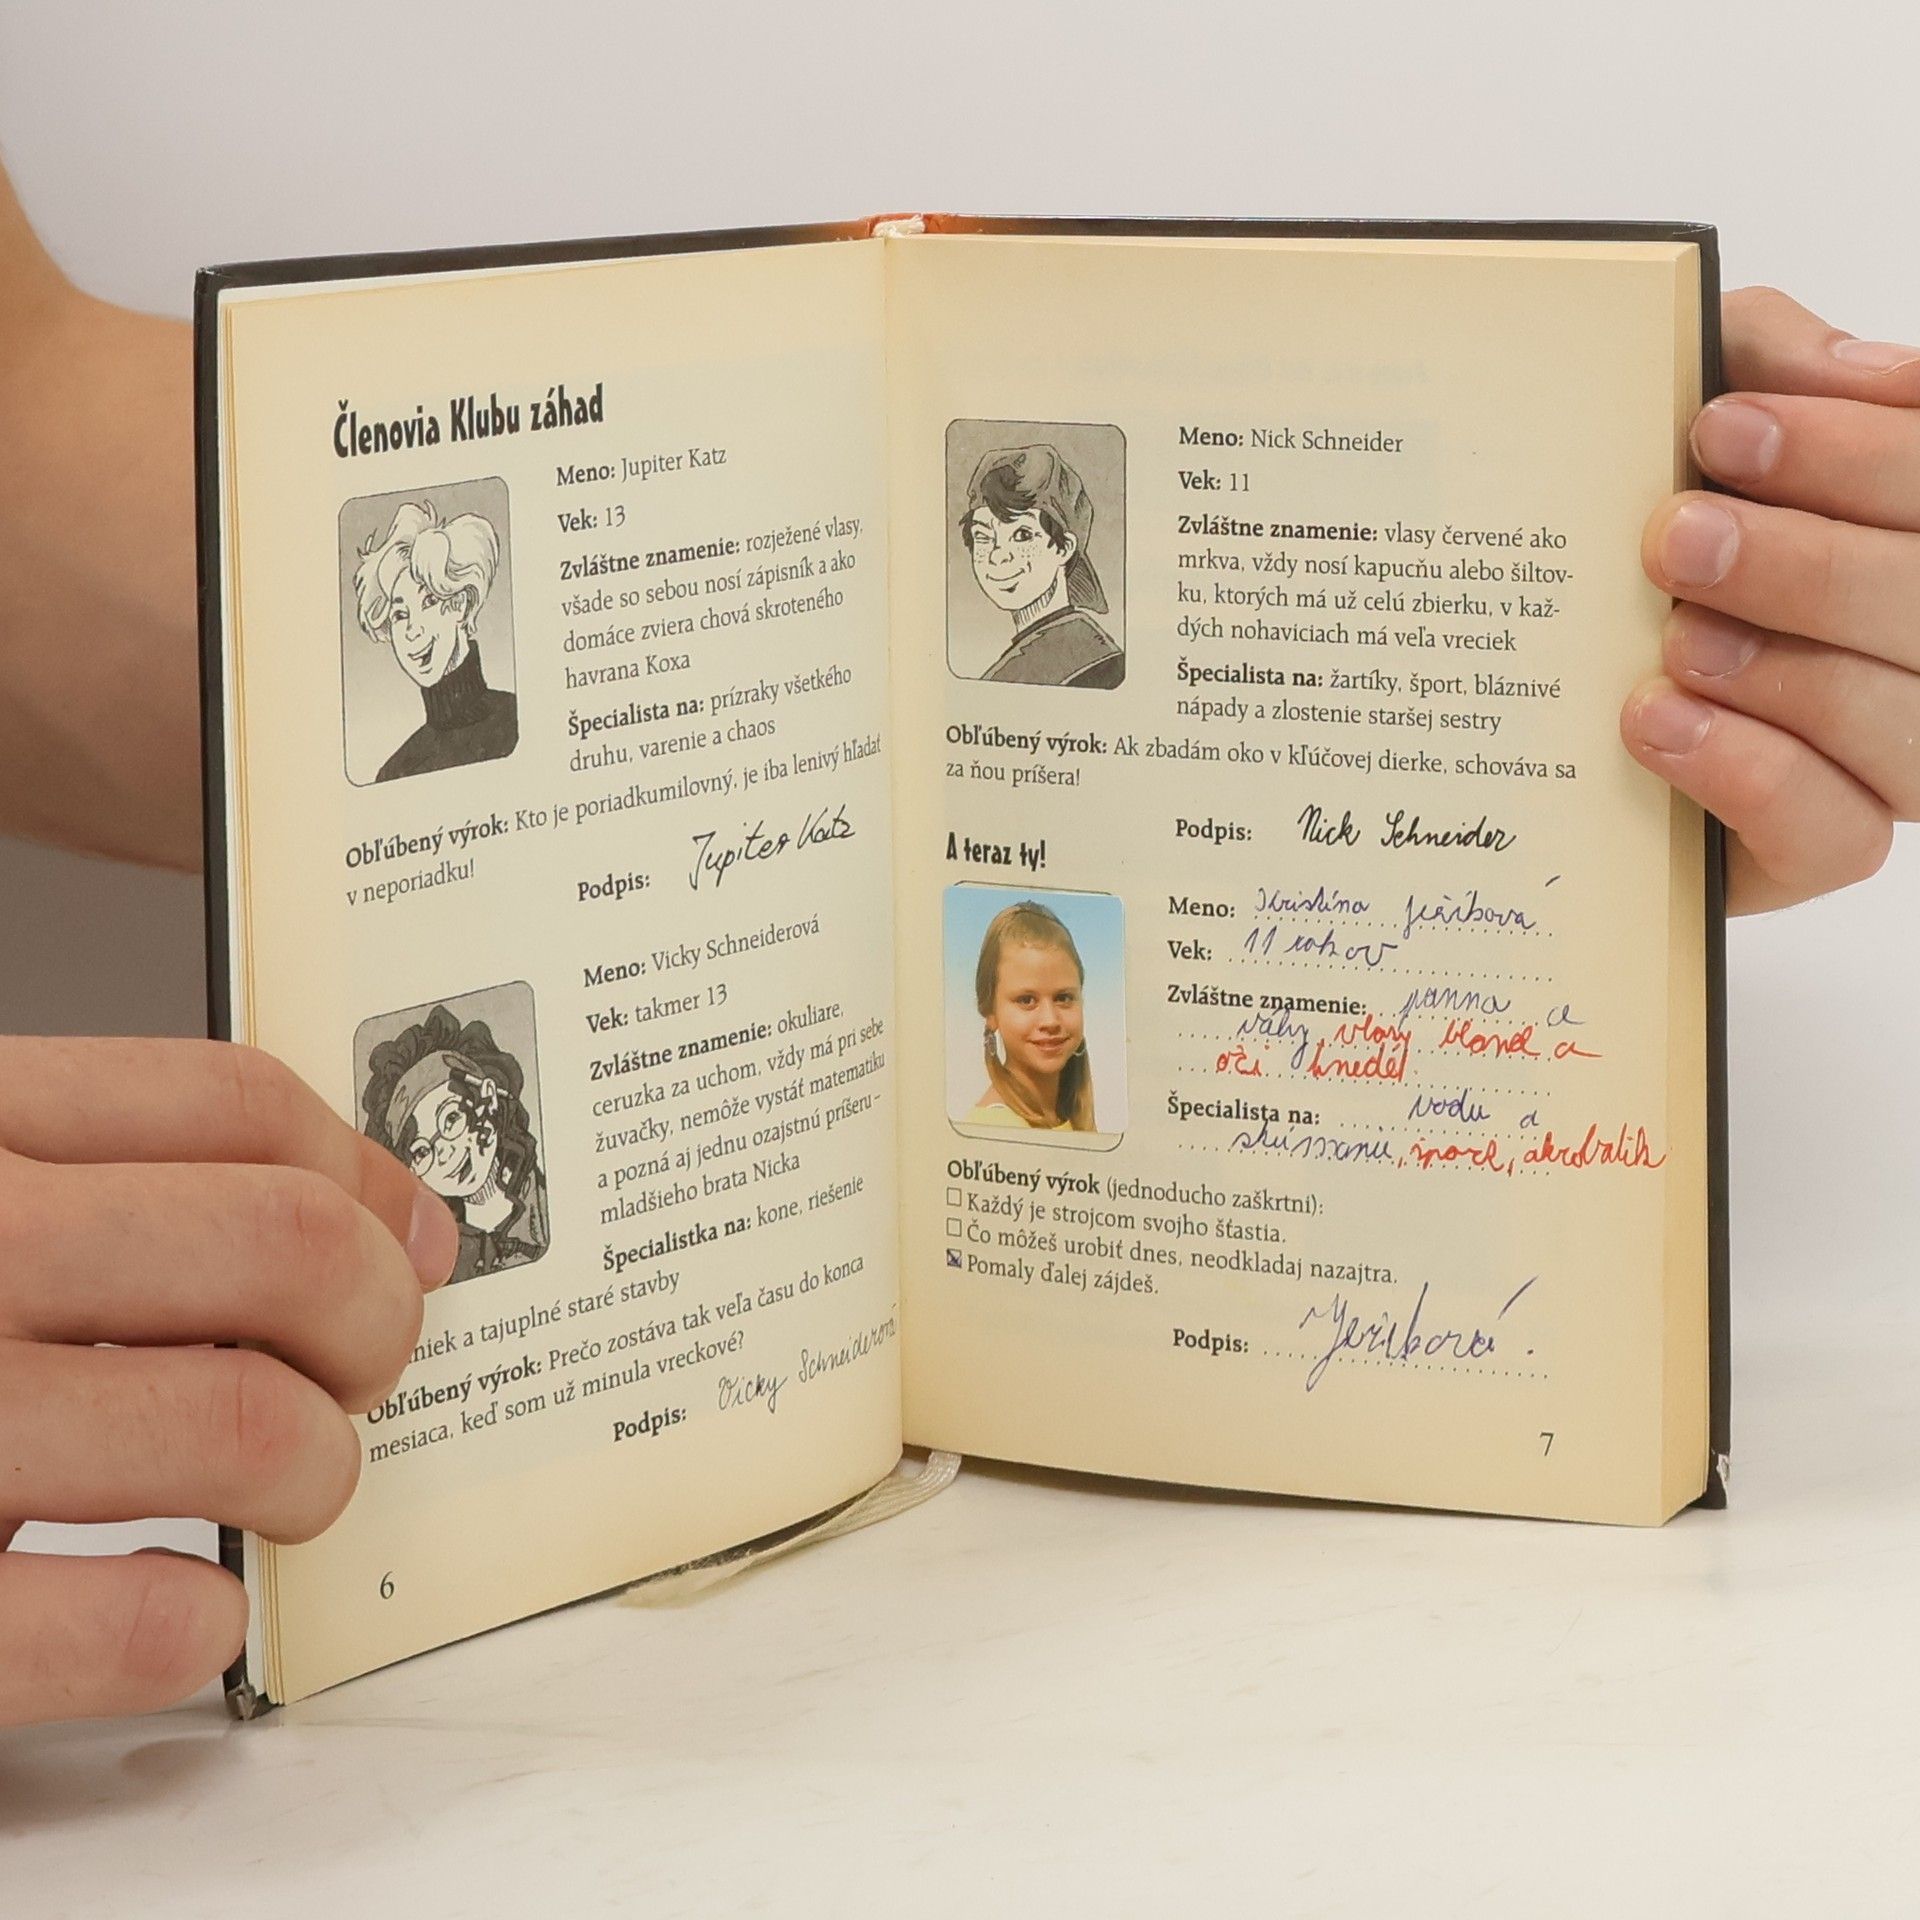 Členovia Klubu záhad
Meno: Jupiter Katz
Vek: 13
Zvláštne znamenie: rozježené vlasy,
všade so sebou nosí zápisník a ako
domáce zviera chová skroteného
havrana Koxa
Špecialista na: prízraky všetkého
druhu, varenie a chaos
Obľúbený výrok: Kto je poriadkumilovný, je iba lenivý hľadať
v neporiadku!
Podpis: Jupiter Katz
Meno: Vicky Schneiderová
Vek: takmer 13
Zvláštne znamenie: okuliare,
ceruzka za uchom, vždy má pri sebe
žuvačky, nemôže vystáť matematiku
a pozná aj jednu ozajstnú príšeru –
mladšieho brata Nicka
Špecialistka na: kone, riešenie
niek a tajuplné staré stavby
Obľúbený výrok: Prečo zostáva tak veľa času do konca
mesiaca, keď som už minula vreckové?
Podpis: Vicky Schneiderová
6
Meno: Nick Schneider
Vek: 11
Zvláštne znamenie: vlasy červené ako
mrkva, vždy nosí kapucňu alebo šiltov-
ku, ktorých má už celú zbierku, v kaž-
dých nohaviciach má veľa vreciek
Špecialista na: žartíky, šport, bláznivé
nápady a zlostenie staršej sestry
Obľúbený výrok: Ak zbadám oko v kľúčovej dierke, schováva sa
za ňou príšera!
Podpis: Nick Schneider
A teraz ty!
Meno: Kristína Jeříková
Vek: 11 rokov
Zvláštne znamenie: panna a
váhy, vlasy blond a
oči hnedé
Špecialista na: vodu a
skúmanie, šport, akrobatik
Obľúbený výrok (jednoducho zaškrtni):
Každý je strojcom svojho šťastia.
Čo môžeš urobiť dnes, neodkladaj nazajtra.
Pomaly ďalej zájdeš.
Podpis: Jeříková.
7